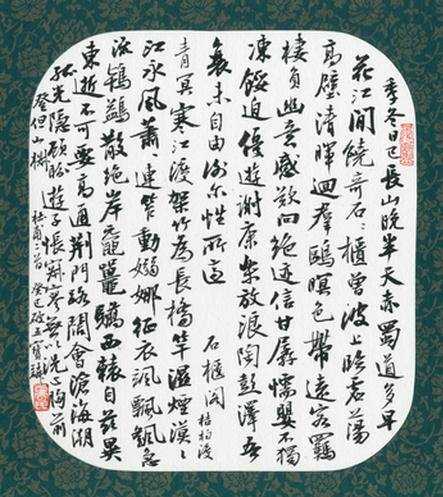 季冬日已長山晚半天赤蜀道多早
花江間饒奇石〻櫃曾波上臨虛蕩
高壁清暉迴羣鷗暝色帶遠客羈
棲負幽意感歎向絶迹信甘孱懦嬰不獨
凍餒迫優遊謝康樂放浪陶彭澤吾
衰未自由謝尔性所適 石櫃閣 桔柏渡
青冥寒江渡架竹為長橋竿濕煙漠〻
江永風蕭〻連笮動嫋娜征衣颯飄颻急
流鴇鷁散絶岸黿鼉驕西轅自茲異
東逝不可要高通荆門路闊會滄海潮
孤光隱顧盼遊子悵寂寥無以洗心胸前
登但山椒 杜甫二首 癸巳破五寶